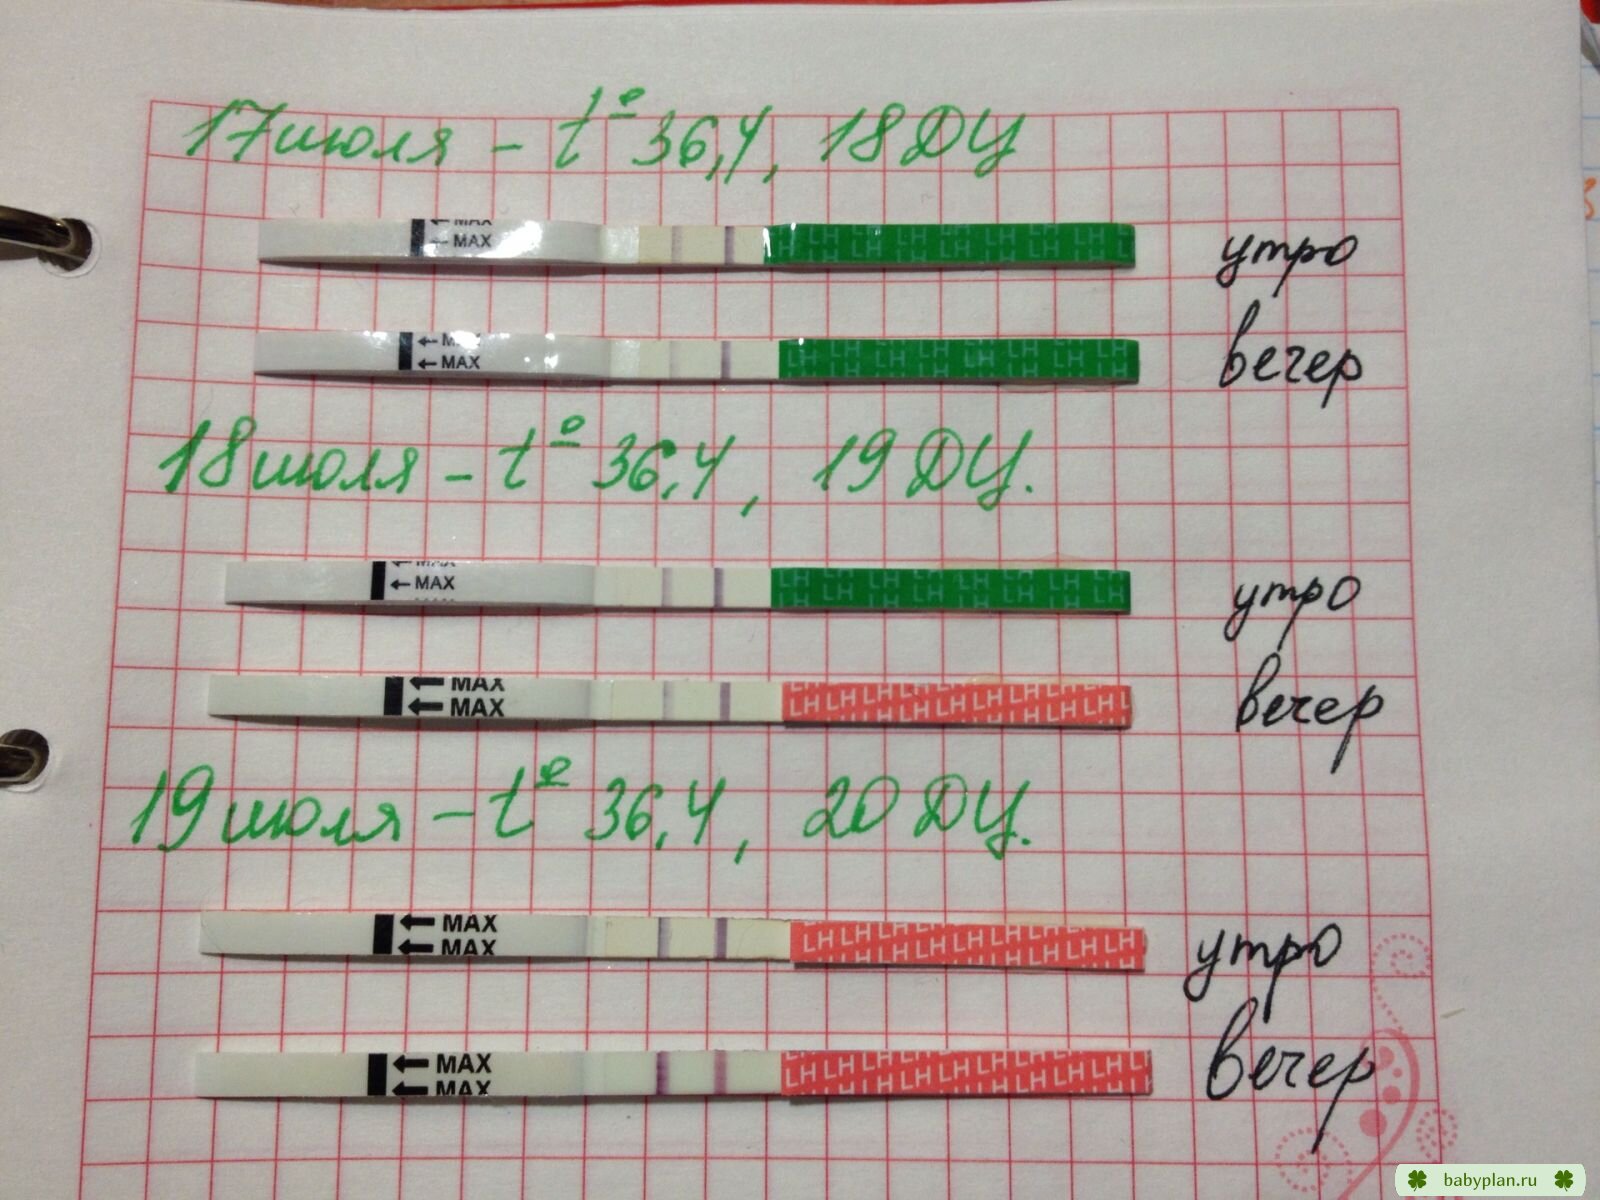 17 июля - tº 36,4, 18 ДЦ
MAX
MAX
LH LH LH LH LH LH LH LH
утро
MAX
MAX
LH LH LH LH LH LH LH LH
вечер
18 июля - tº 36,4, 19 ДЦ.
MAX
MAX
LH LH LH LH LH LH LH LH
утро
MAX
MAX
LH LH LH LH LH LH LH LH
вечер
19 июля - tº 36,4, 20 ДЦ.
MAX
MAX
LH LH LH LH LH LH LH LH
утро
MAX
MAX
LH LH LH LH LH LH LH LH
вечер
babyplan.ru